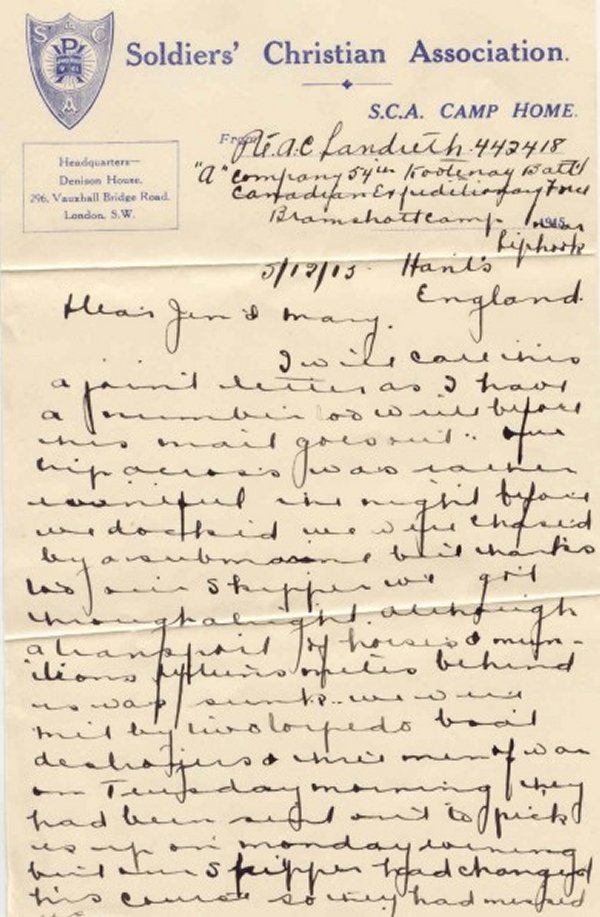 S C A
Soldiers' Christian Association.
S.C.A. CAMP HOME.
Headquarters—
Denison House,
296, Vauxhall Bridge Road,
London, S.W.
From Pte. A.C. Landreth. 442418
"A" company 54th Kootenay Batt'l
Canadian Expeditionary Force
Bramshott camp near 1915
Liphook
5/12/15. Hant's
England.
Dear Jen & Mary.
I will call this
a joint letter as I have
a number to write before
this mail goes out. Our
trip across was rather
eventful the night before
we docked we were chased
by a submarine but thanks
to our Skipper we got
through alright. although
a transport of horses & mun-
itions miles behind
us was sunk. we were
met by two torpedo boat
destroyers & three men of war
on Tuesday morning they
had been sent out to pick
us up on monday evening
but our Skipper had changed
his course so they had missed
us